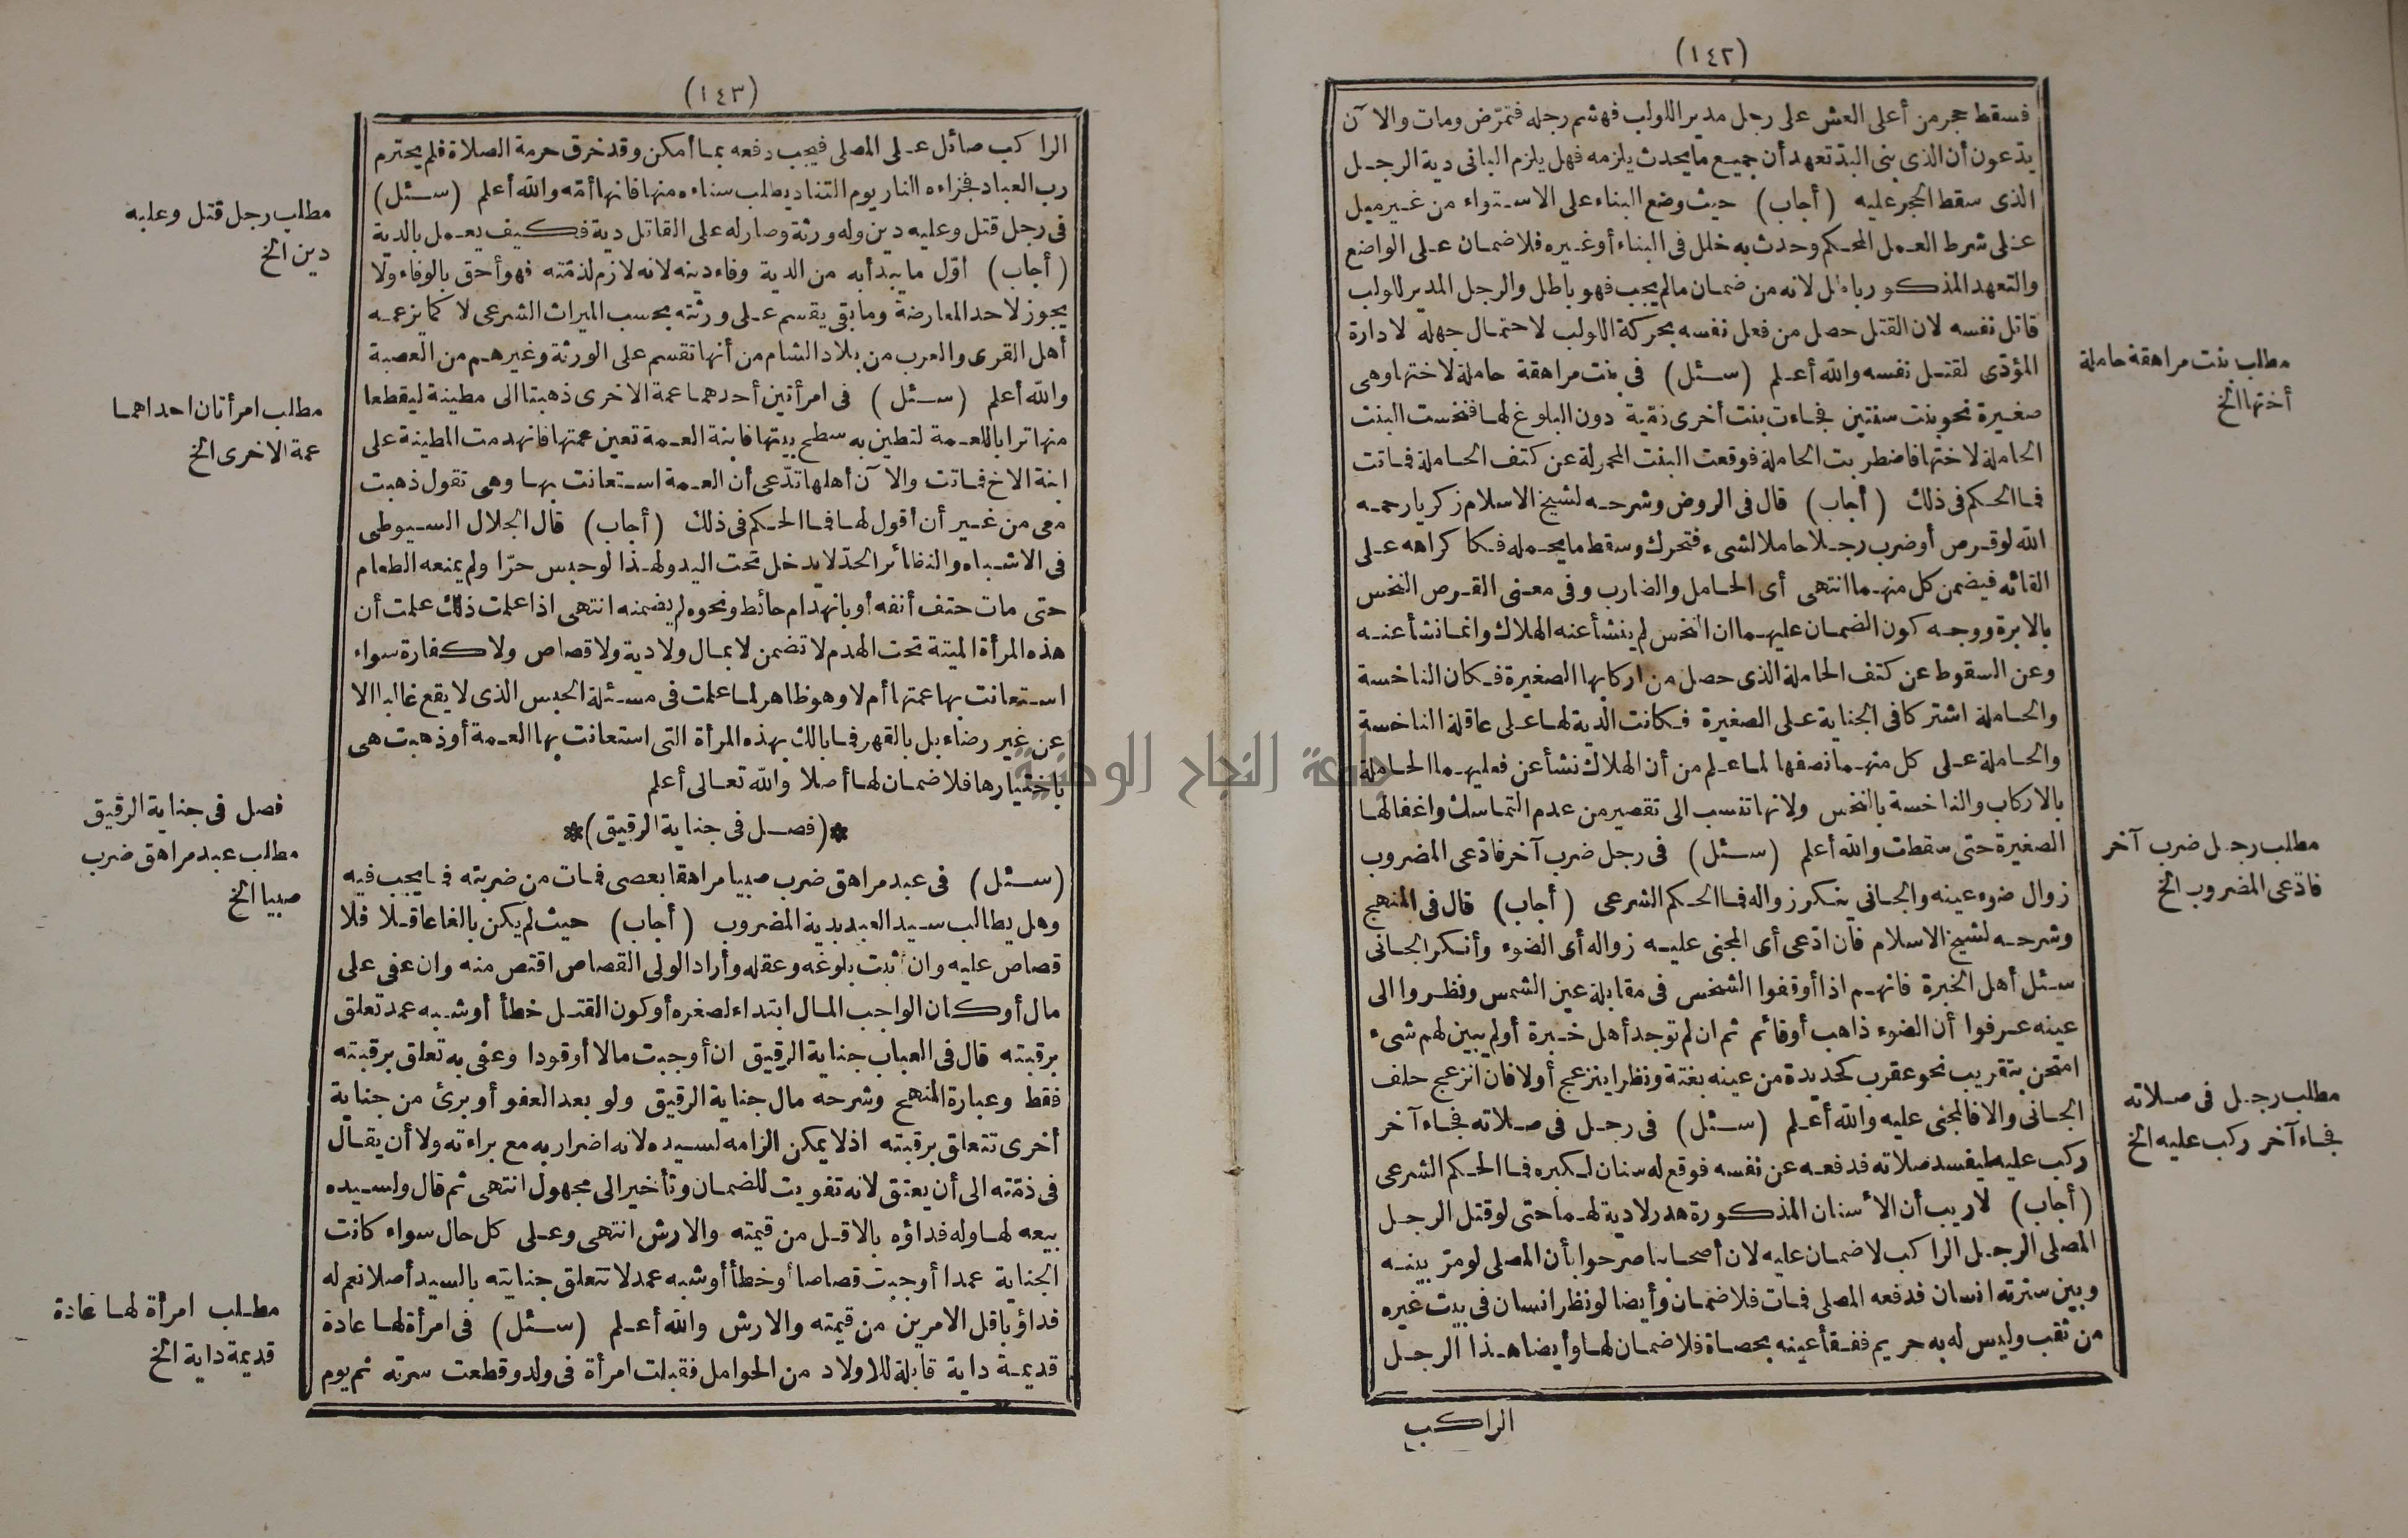 (١٤٢)
فسقط حجر من أعلى العش على رجل مدير اللولب فهشم رجله فتمرّض ومات والآن
يدّعون أن الذى بنى البدّ تعهد أن جميع ما يحدث يلزمه فهل يلزم البانى دية الرجل
الذى سقط الحجر عليه (أجاب) حيث وضع البناء على الاستواء من غير ميل
على شرط العمل المحكم وحدث به خلل فى البناء أو غيره فلا ضمان على الواضع
والتعهد المذكور باطل لانه من ضمان ما لم يجب فهو باطل والرجل المدير للولب
قاتل نفسه لان القتل حصل من فعل نفسه بحركة اللولب لاحتمال جهله لادارة
المؤدّى لقتل نفسه والله أعلم (سئل) فى بنت مراهقة حاملة لاختها وهى
صغيرة نحو بنت سنتين فجاءت بنت أخرى ذمّية دون البلوغ لها فنخست البنت
الحاملة لاختها فاضطربت الحاملة فوقعت البنت المحمولة عن كتف الحاملة فماتت
فما الحكم فى ذلك (أجاب) قال فى الروض وشرحه لشيخ الاسلام زكريا رحمه
الله لو قرص أو ضرب رجلا حاملا لشىء فتحرك وسقط ما يحمله فكاكراهه على
القائه فيضمن كل منهما انتهى أى الحامل والضارب وفى معنى القرص النخس
بالابرة ووجه كون الضمان عليهما ان النخس لم ينشأ عنه الهلاك وانما نشأ عنه
وعن السقوط عن كتف الحاملة الذى حصل من اركابها الصغيرة فكان الناخسة
والحاملة اشتركا فى الجناية على الصغيرة فكانت الدية لها على عاقلة الناخسة
والحاملة على كل منهما نصفها لما علم من أن الهلاك نشأ عن فعليهما الحاملة
بالاركاب والناخسة بالنخس ولانها تنسب الى تقصير من عدم التماسك واغفالها
الصغيرة حتى سقطت والله أعلم (سئل) فى رجل ضرب آخر فادّعى المضروب
زوال ضوء عينه والجانى ينكر زواله فما الحكم الشرعى (أجاب) قال فى المنهج
وشرحه لشيخ الاسلام فان ادّعى أى المجنى عليه زواله أى الضوء وأنكر الجانى
سئل أهل الخبرة فانهم اذا أوقفوا الشخص فى مقابلة عين الشمس ونظروا الى
عينه عرفوا أن الضوء ذاهب أو قائم ثم ان لم توجد أهل خبرة أو لم يبين لهم شىء
امتحن بتقريب نحو عقرب كحديدة من عينه بغتة ونظر اينزعج أولا فان انزعج حلف
الجانى والا فالمجنى عليه والله أعلم (سئل) فى رجل فى صلاته فجاء آخر
ركب عليه ليفسد صلاته فدفعه عن نفسه فوقع له سنان لكبره فما الحكم الشرعى
(أجاب) لا ريب أن الأسنان المذكورة هدر لا دية لهما حتى لو قتل الرجل
المصلى الرجل الراكب لا ضمان عليه لان أصحابنا صرحوا بأن المصلى لو مرّ بينه
وبين سترته انسان فدفعه المصلى فمات فلا ضمان وأيضا لو نظر انسان فى بيت غيره
من ثقب وليس له به حريم ففقأ عينه بحصاة فلا ضمان لها وأيضا هذا الرجل
الراكب
مطلب بنت مراهقة حاملة
أختها الخ
مطلب رجل ضرب آخر
فادّعى المضروب الخ
مطلب رجل فى صلاته
فجاء آخر ركب عليه الخ
(١٤٣)
الراكب صائل على المصلى فيجب دفعه بما أمكن وقد خرق حرمة الصلاة فلم يحترم
رب العباد فجزاءه النار يوم التناد يطلب سناءه منها فانها أمّه والله أعلم (سئل)
فى رجل قتل وعليه دين وله ورثة وصار له على القاتل دية فكيف يعمل بالدية
(أجاب) اوّل ما يبدأ به من الدية وفاء دينه لانه لازم لذمّته فهو أحق بالوفاء ولا
يجوز لاحد المعارضة وما بقى يقسم على ورثته بحسب الميراث الشرعى لا كما يزعمه
أهل القرى والعرب من بلاد الشام من أنها تقسم على الورثة وغيرهم من العصبة
والله أعلم (سئل) فى امرأتين أحدهما عمة الاخرى ذهبتا الى مطينة ليقطعا
منها ترابا للعمة لتطين به سطح بيتها فابنة العمة تعين عمتها فانهدمت المطينة على
ابنة الاخ فماتت والآن أهلها تدّعى أن العمة استعانت بها وهى تقول ذهبت
معى من غير أن أقول لها فما الحكم فى ذلك (أجاب) قال الجلال السيوطى
فى الاشباه والنظائر الحرّ لا يدخل تحت اليد ولهذا لو حبس حرّا ولم يمنعه الطعام
حتى مات حتف أنفه أو بانهدام حائط ونحوه لم يضمنه انتهى اذا علمت ذلك علمت أن
هذه المرأة الميتة تحت الهدم لا تضمن لا بمال ولا دية ولا قصاص ولا كفارة سواء
استعانت بها عمتها أم لا وهو ظاهر لما علمت فى مسئلة الحبس الذى لا يقع غالبا الا
عن غير رضاء بل بالقهر فما بالك بهذه المرأة التى استعانت بها العمة أو ذهبت هى
باختيارها فلا ضمان لها أصلا والله تعالى أعلم
*(فصل فى جناية الرقيق)*
(سئل) فى عبد مراهق ضرب صبيا مراهقا بعصى فمات من ضربته فما يجب فيه
وهل يطالب سيد العبد بدية المضروب (أجاب) حيث لم يكن بالغا عاقلا فلا
قصاص عليه وان ثبت بلوغه وعقله وأراد الولى القصاص اقتص منه وان عفى على
مال أو كان الواجب المال ابتداء لصغره أو كون القتل خطأ أو شبه عمد تعلق
برقبته قال فى العباب جناية الرقيق ان أوجبت مالا أو قودا وعفى به تعلق برقبته
فقط وعبارة المنهج وشرحه مال جناية الرقيق ولو بعد العفو أو برئ من جناية
أخرى تتعلق برقبته اذ لا يمكن الزامه لسيده لانه اضرار به مع براءته ولا أن يقال
فى ذمّته الى أن يعتق لانه تفويت للضمان وتأخير الى مجهول انتهى ثم قال ولسيده
بيعه لها وله فداؤه بالاقل من قيمته والارش انتهى وعلى كل حال سواء كانت
الجناية عمدا أوجبت قصاصا أو خطأ أو شبه عمد لا تتعلق جنايته بالسيد أصلا نعم له
فداؤ باقل الامرين من قيمته والارش والله أعلم (سئل) فى امرأة لها عادة
قديمة داية قابلة للاولاد من الحوامل فقبلت امرأة فى ولد وقطعت سرته ثم يوم
مطلب رجل قتل وعليه
دين الخ
مطلب امرأتان احداهما
عمة الاخرى الخ
فصل فى جناية الرقيق
مطلب عبد مراهق ضرب
صبيا الخ
مطلب امرأة لها عادة
قديمة داية الخ
جامعة النجاح الوطنية